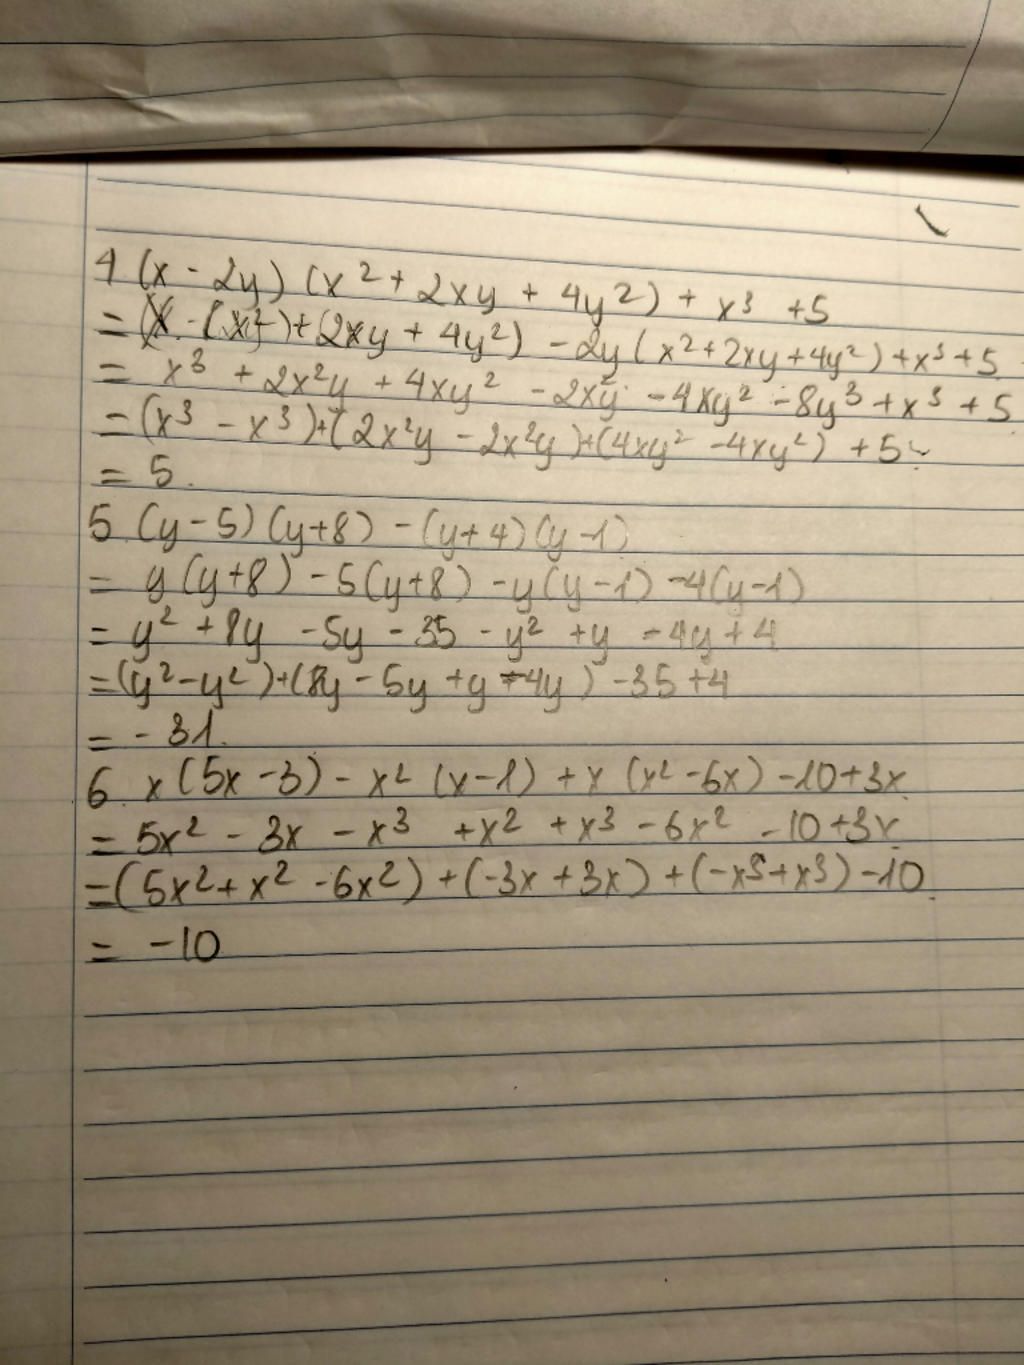 4 (x - 2y) (x² + 2xy + 4y²) + x³ + 5
= (x²) + (2xy + 4y²) - 2y (x² + 2xy + 4y²) + x³ + 5
= x³ + 2x²y + 4xy² - 2x²y - 4xy² - 8y³ + x³ + 5
= (x³ - x³) + (2x²y - 2x²y) + (4xy² - 4xy²) + 5
= 5.
5 (y - 5) (y + 8) - (y + 4) (y - 1)
= y (y + 8) - 5 (y + 8) - y (y - 1) - 4 (y - 1)
= y² + 8y - 5y - 35 - y² + y - 4y + 4
= (y² - y²) + (8y - 5y + y - 4y) - 35 + 4
= - 31.
6. x (5x - 3) - x² (x - 1) + x (x² - 6x) - 10 + 3x
= 5x² - 3x - x³ + x² + x³ - 6x² - 10 + 3x
= (5x² + x² - 6x²) + (-3x + 3x) + (-x³ + x³) - 10
= -10